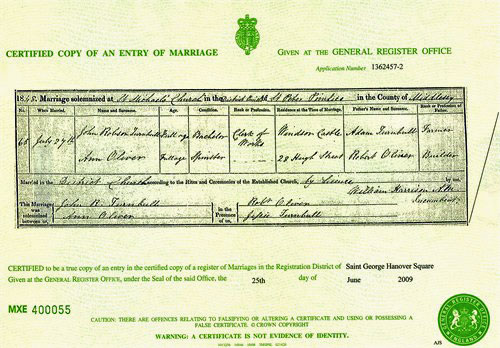 CERTIFIED COPY OF AN ENTRY OF MARRIAGE
GIVEN AT THE GENERAL REGISTER OFFICE
Application Number 1362457-2
1848. Marriage solemnized at St Michaels Church in the District of St Peter Pimlico in the County of Middlesex
When Married. Name and Surname. Age. Condition. Rank or Profession. Residence at the Time of Marriage. Father's Name and Surname. Rank or Profession of Father.
66 July 27th John Robson Turnbull Full age Bachelor Clerk of Works Windsor Castle Adam Turnbull Farmer
Ann Oliver Full age Spinster 28 Hugh Street Robert Oliver Builder
Married in the District Church according to the Rites and Ceremonies of the Established Church, by Licence by me,
William Harrison
Incumbent
This Marriage was solemnized between us, John R. Turnbull
Ann Oliver
in the Presence of us, Robt Oliver
Turnbull
CERTIFIED to be a true copy of an entry in the certified copy of a register of Marriages in the Registration District of Saint George Hanover Square
Given at the GENERAL REGISTER OFFICE, under the Seal of the said Office, the 25th day of June 2009
MXE 400055
CAUTION: THERE ARE OFFENCES RELATING TO FALSIFYING OR ALTERING A CERTIFICATE AND USING OR POSSESSING A
FALSE CERTIFICATE. © CROWN COPYRIGHT
WARNING: A CERTIFICATE IS NOT EVIDENCE OF IDENTITY.
GENERAL REGISTER OFFICE
ENGLAND